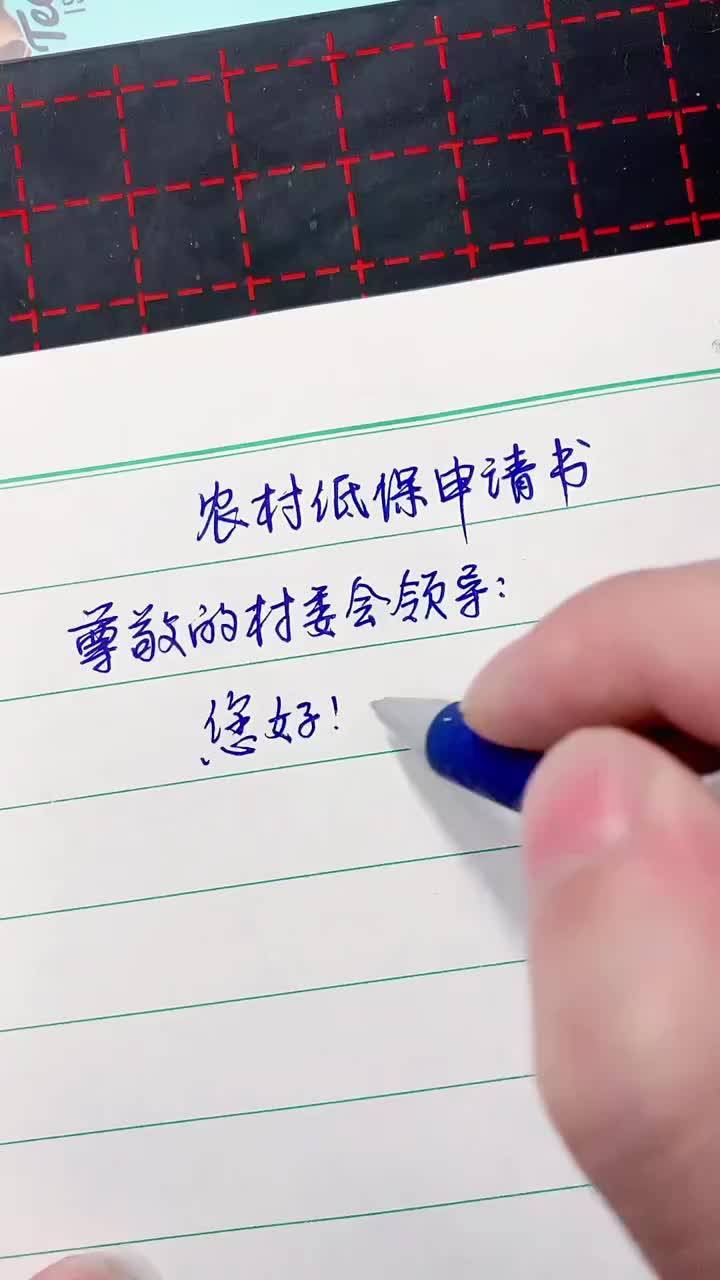 农村低保申请书
尊敬的村委会领导：
您好！